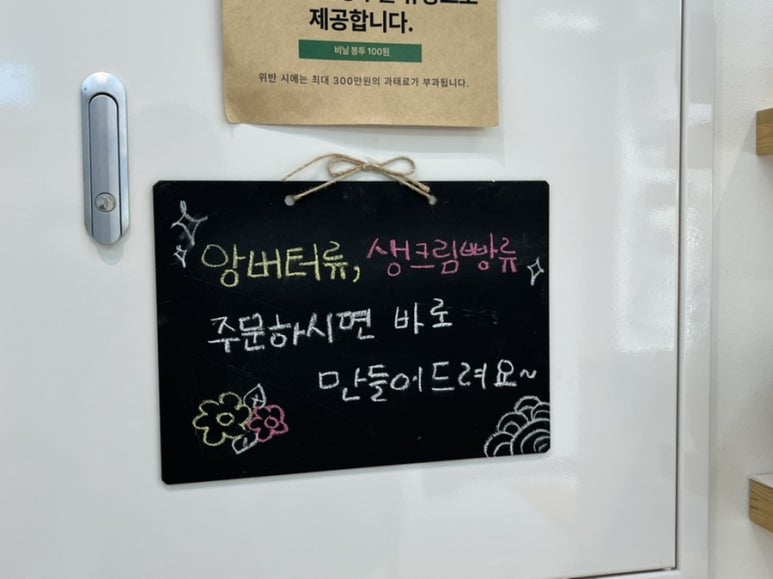 제공합니다.
비닐 봉투 100원
위반 시에는 최대 300만원의 과태료가 부과됩니다.
앙버터류, 생크림빵류
주문하시면 바로
만들어드려요~